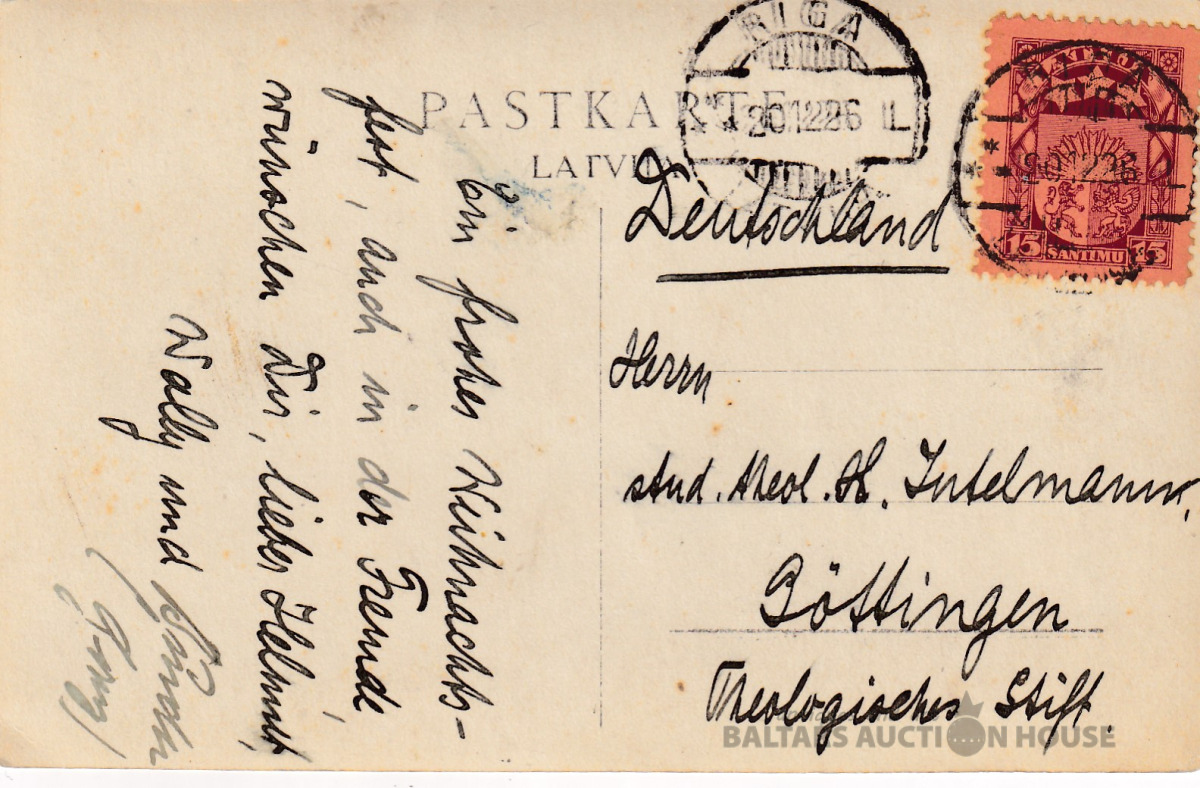 PASTKARTE
LATVIJA
RIGA
20.12.26
LATVIJA
15 SANTIMU 15
Ein frohes Weihnachts-
fest, auch in der Fremde,
wünschen Dir, lieber Helmut,
Wally und
Deutschland
Herrn
stud. theol. H. Intelmann,
Göttingen
Theologisches Stift.
BALTARS AUCTION HOUSE